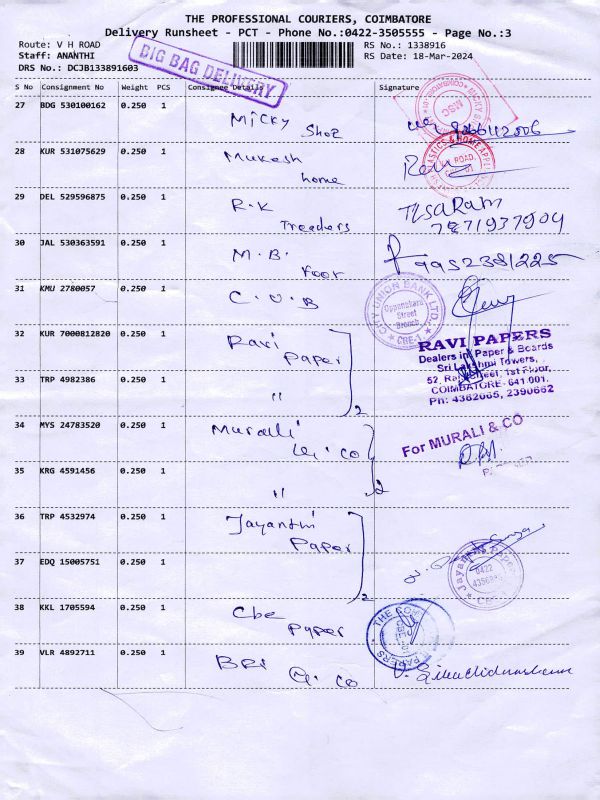 THE PROFESSIONAL COURIERS, COIMBATORE
Delivery Runsheet - PCT - Phone No.:0422-3505555 - Page No.:3
Route: V H ROAD
RS No.: 1338916
Staff: ANANTHI
RS Date: 18-Mar-2024
DRS No.: DCJB133891603
BIG BAG DELIVERY
S No Consignment No Weight PCS Consignee Details Signature
27 BDG 530100162 0.250 1
Micky Shoe
MSC
28 KUR 531075629 0.250 1
Mukesh home
29 DEL 529596875 0.250 1
R.K Treaders
TULSARAM
7871937904
30 JAL 530363591 0.250 1
M.B. Foor
9952381225
31 KMU 2780057 0.250 1
C.U.B
CITY UNION BANK LTD.,
Oppanakara
Street
Branch
CBE-1
32 KUR 7000812820 0.250 1
Ravi Paper
2
RAVI PAPERS
Dealers in Paper & Boards
Sri Lakshmi Towers,
52, Raja Street, 1st Floor,
COIMBATORE-641 001.
Ph: 4362065, 2390662
33 TRP 4982386 0.250 1
"
34 MYS 24783520 0.250 1
Murali & co
2
For MURALI & CO
35 KRG 4591456 0.250 1
"
36 TRP 4532974 0.250 1
Jayanthi Paper
2
37 EDQ 15005751 0.250 1
Jayanthi Paper
0422
CBE-1
38 KKL 1705594 0.250 1
Cbe Paper
39 VLR 4892711 0.250 1
BRI & co